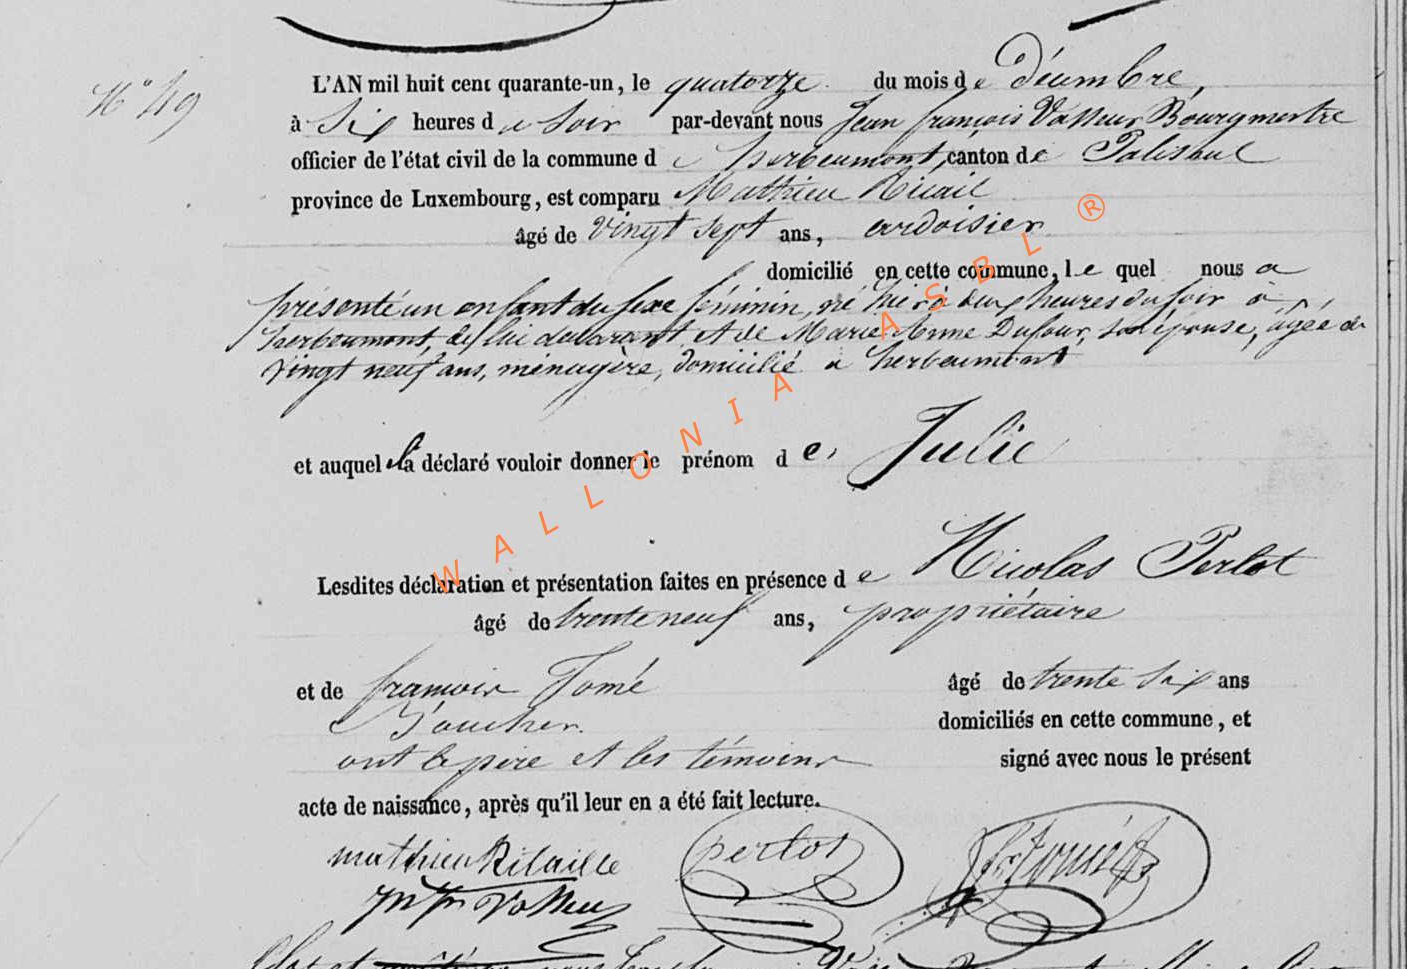 N° 49
L'AN mil huit cent quarante-un, le quatorze du mois de décembre,
à Six heures du Soir par-devant nous Jean françois Vasseur Bourgmestre
officier de l'état civil de la commune de herbeumont, canton de Paliseul
province de Luxembourg, est comparu Mathieu
âgé de vingt sept ans, ardoisier
domicilié en cette commune, le quel nous a
présenté un enfant du sexe féminin, né hier à heures du soir à
herbeumont, de lui déclarant et de Marie Anne Dufour, son épouse, âgée de
vingt neuf ans, ménagère, domicilié à herbeumont
et auquel il a déclaré vouloir donner le prénom de Julie
Lesdites déclaration et présentation faites en présence de Nicolas Perlot
âgé de trente neuf ans, propriétaire
et de françois Tomé âgé de trente Six ans
Boucher domiciliés en cette commune, et
ont le père et les témoins signé avec nous le présent
acte de naissance, après qu'il leur en a été fait lecture.
mathieu Rilaille perlot Tomé
Vasseur
WALLONIA ASBL ®